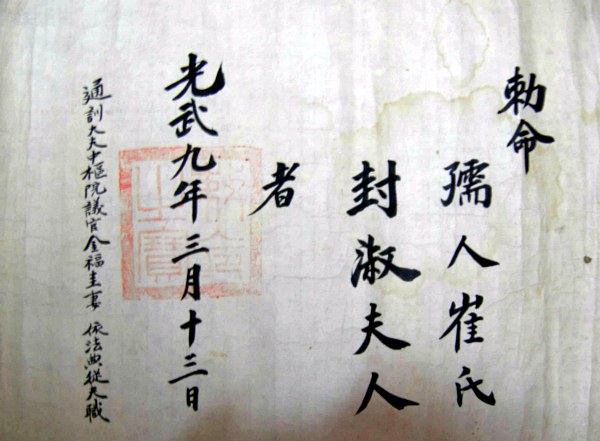 勅命
孺人崔氏
封淑夫人
者
光武九年三月十三日
通訓大夫中樞院議官金福圭妻 依法典從夫職